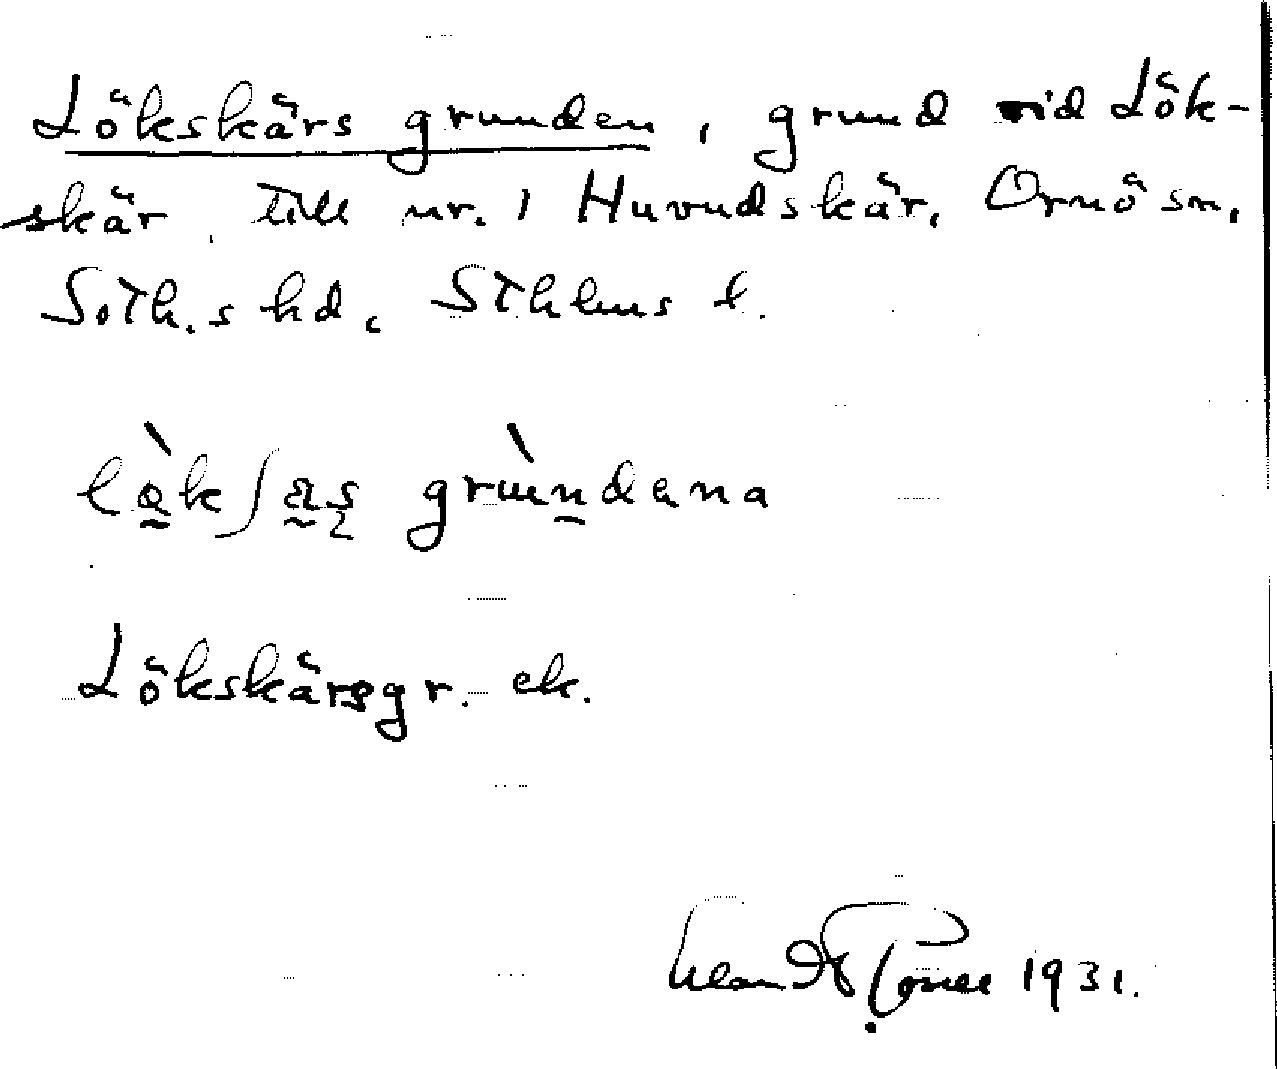 Lökskärs grunden, grund vid Lök-
skär, till nr. 1 Huvudskär, Ornö sn,
Soth.s hd, Sthlms l.
grùndena
Lökskärsgr. ek.
1931.